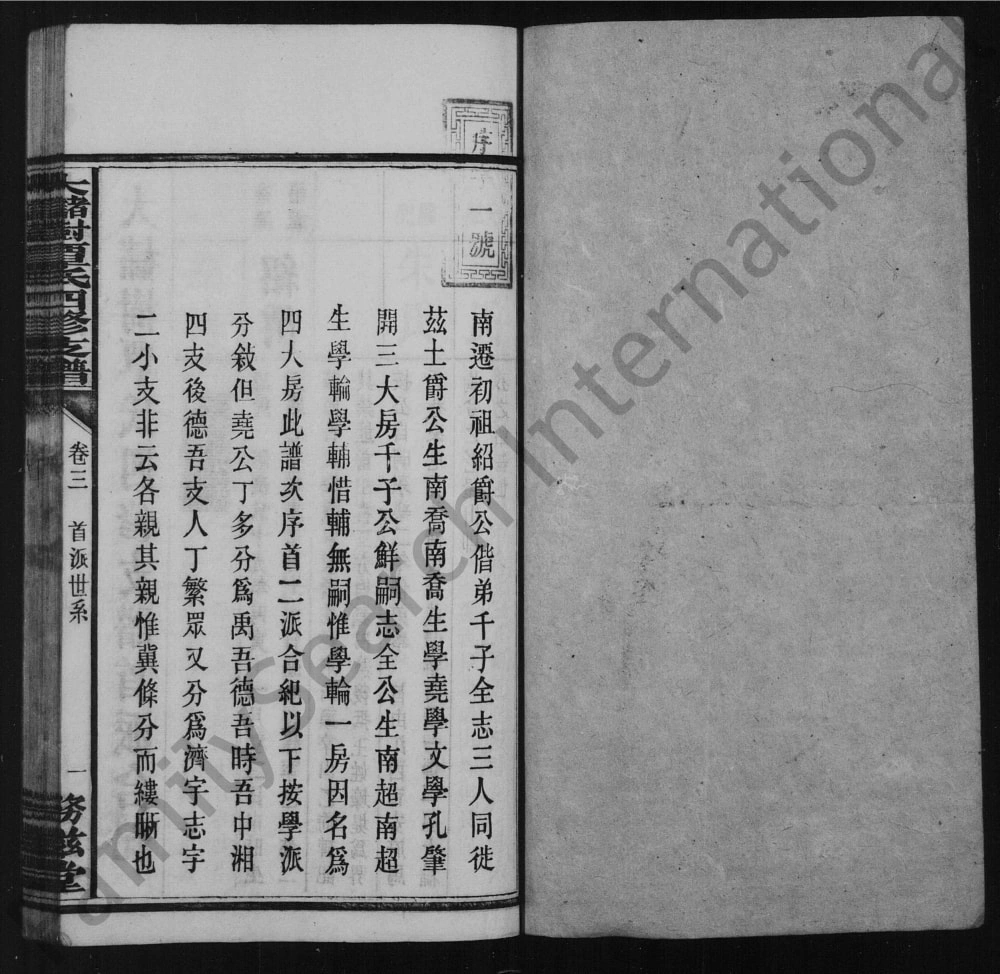 序
一號
南遷初祖紹爵公偕弟千子全志三人同徙
茲土爵公生南喬南喬生學堯學文學孔肇
開三大房千子公鮮嗣志全公生南超南超
生學輪學輔惜輔無嗣惟學輪一房因名爲
四大房此譜次序首二派合紀以下按學派
分敍但堯公丁多分爲禹吾德吾時吾中湘
四支後德吾支人丁繁眾又分爲濟宇志宇
二小支非云各親其親惟冀條分而縷晰也
譚氏四修支譜
卷三
首派世系
一
務滋堂
FamilySearch International